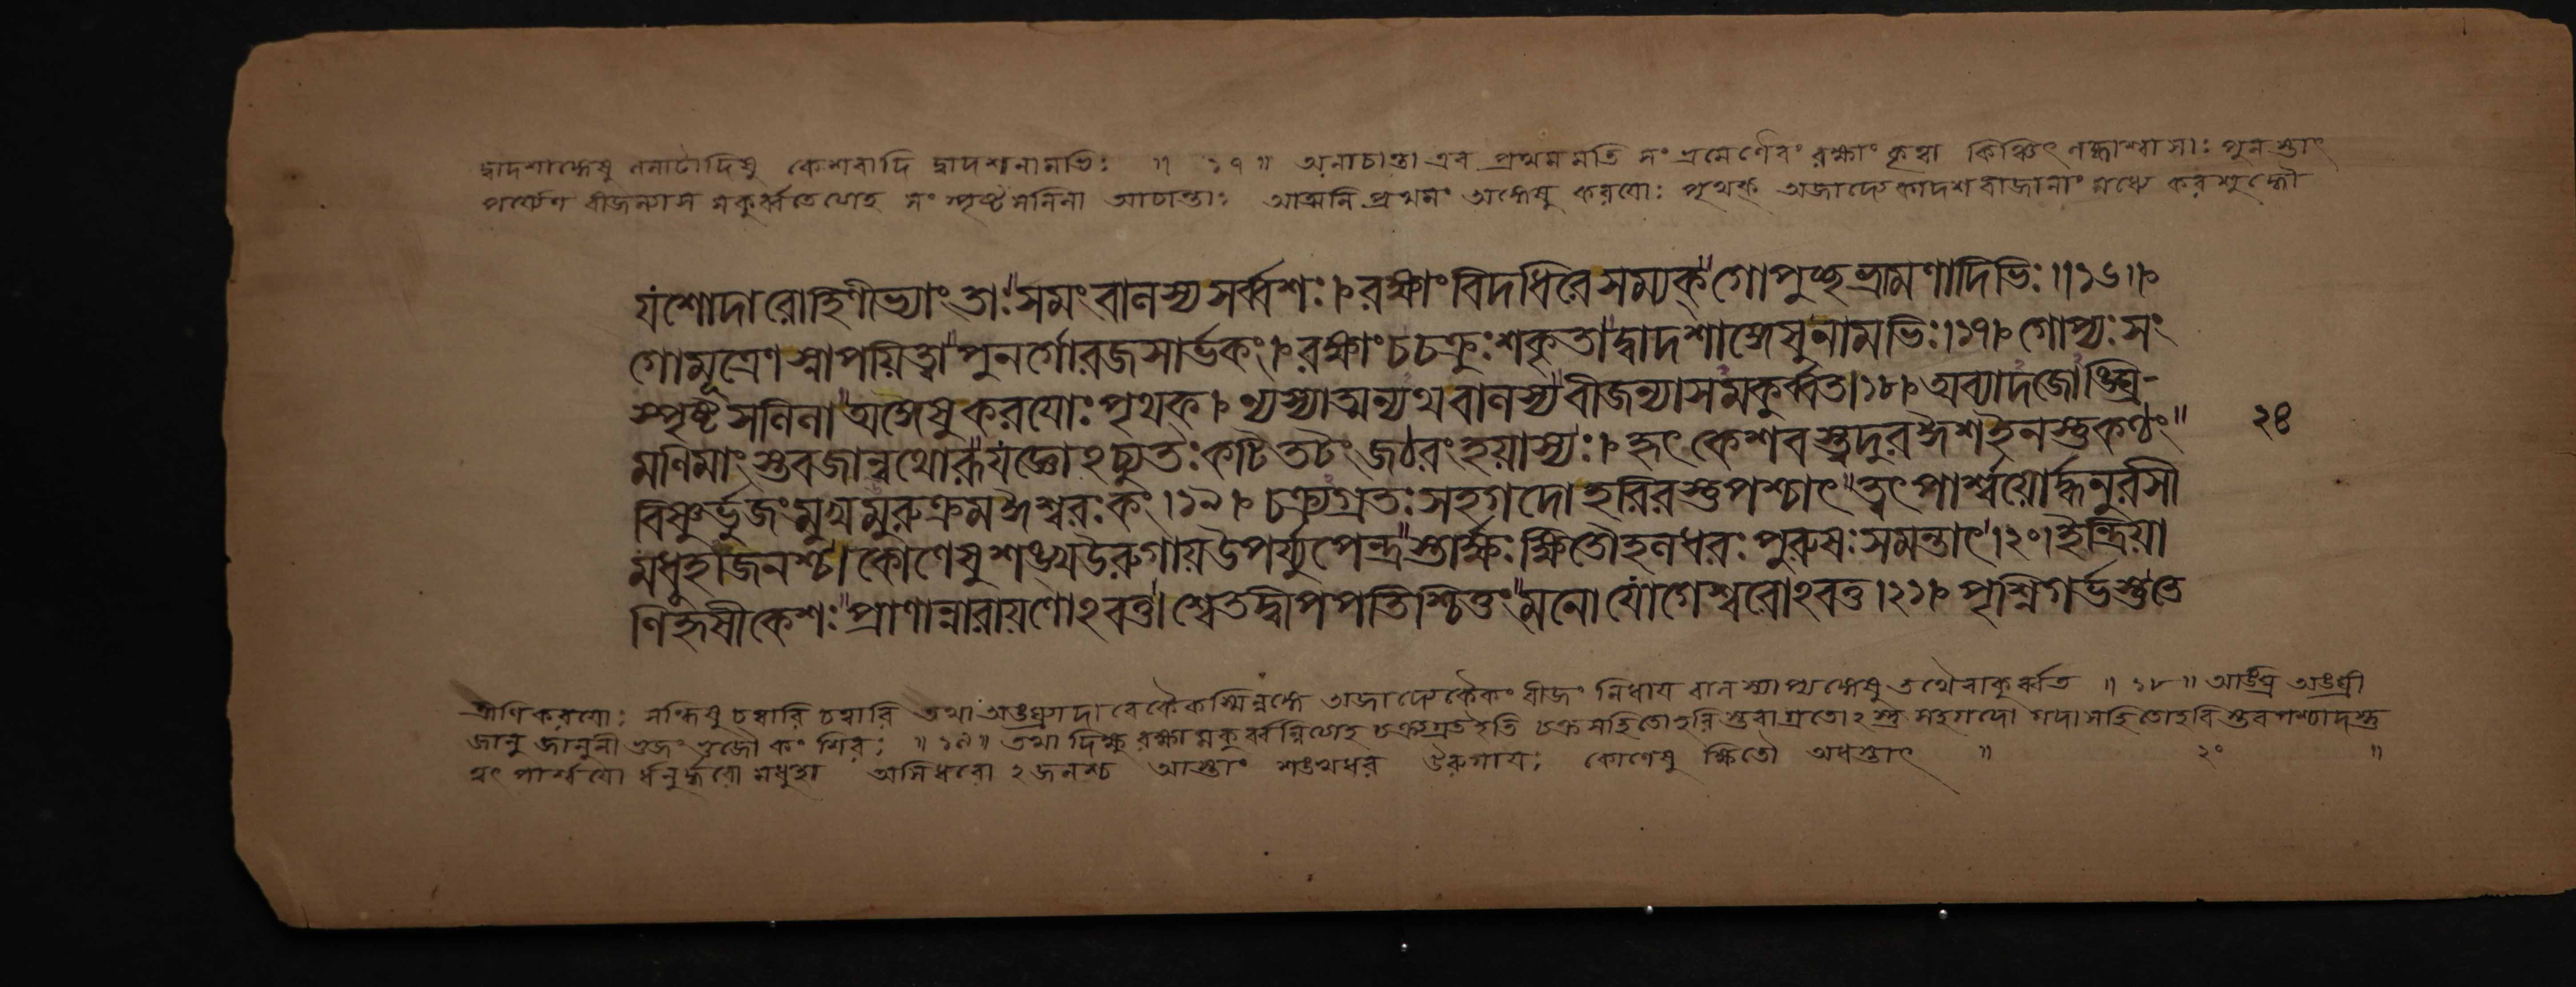 দ্বাদশাঙ্গেষু ললাটাদিষু কেশবাদি দ্বাদশনামভিঃ ॥ ১৭ ॥ অনাচান্তা এব প্রথমমতি সংভ্রমেণৈবং রক্ষাং কৃত্বা কিঞ্চিৎ লব্ধাশ্বাসাঃ পুনস্তাৎ
পর্য্যেণ বীজন্যাস মকুর্ব্বতেত্যাহ সংস্পৃষ্টসলিলা আচান্তাঃ আত্মনি প্রথমং অঙ্গেষু করযোঃ পৃথক্ অজাদ্যেকাদশবীজানাং মধ্যে করশুদ্ধৌ
যশোদারোহিণীভ্যাং তাঃ সমং বালস্য সর্ব্বশঃ। রক্ষাং বিদধিরে সম্যক্ গোপুচ্ছভ্রামণাদিভিঃ॥১৬॥
গোমূত্রেণ স্নাপয়িত্বা পুনর্গোরজসার্ভকং। রক্ষাং চচক্রুঃ শকৃতা দ্বাদশাঙ্গেষু নামভিঃ।১৭। গোপ্যঃ সং
স্পৃষ্টসলিলা অঙ্গেষু করযোঃ পৃথক্। ন্যস্যাত্মন্যথ বালস্য বীজন্যাসমকুর্ব্বত।১৮। অব্যাদজোঙ্ঘ্রি-
মণিমাংস্তব জান্বথোরূ যজ্ঞোঽচ্যুতঃ কটিতটং জঠরং হয়াস্যঃ। হৃৎ কেশবস্ত্বদুর ঈশ ইনস্তু কণ্ঠং
২৪
বিষ্ণুর্ভুজং মুখমুরুক্রম ঈশ্বরঃ কং।১৯। চক্র্যগ্রতঃ সহগদো হরিরস্তু পশ্চাৎ ত্বৎপার্শ্বয়োর্দ্ধনুরসী
মধুহাজনশ্চ। কোণেষু শঙ্খ উরুগায় উপর্য্যুপেন্দ্র স্তার্ক্ষ্যঃ ক্ষিতৌ হলধরঃ পুরুষঃ সমন্তাৎ।২০। ইন্দ্রিয়া
ণি হৃষীকেশঃ প্রাণান্নারায়ণোঽবতু। শ্বেতদ্বিপপতিশ্চিত্তং মনো যোগেশ্বরোঽবতু।২১। পৃশ্নিগর্ভস্তু তে
ত্রীণি করযোঃ সন্ধিষু চত্বারি চত্বারি তথা অঙ্ঘ্র্যাদাবেকৈকস্মিন্নঙ্গে অজাদ্যেকৈকং বীজং নিধায বালস্যাপ্যঙ্গেষু তথৈবাকুর্ব্বত ॥ ১৮ ॥ আঙ্ঘ্রি অঙ্ঘ্রী
জানু জানুনী ভুজং ভুজৌ কং শিরঃ ॥ ১৯ ॥ তথা দিক্ষু রক্ষামকুর্ব্বন্নিত্যাহ চক্র্যগ্রত ইতি চক্রসহিতো হরি স্তবাগ্রতোঽস্তু সহগদো গদাসহিতো হরি স্তব পশ্চাদস্তু
ত্বৎ পার্শ্বযো র্ধনুর্দ্ধরো মধুহা অসিধরোঽজনশ্চ আস্তাং শঙ্খধর উরুগাযঃ কোণেষু ক্ষিতৌ অধস্তাৎ ॥ ২০ ॥